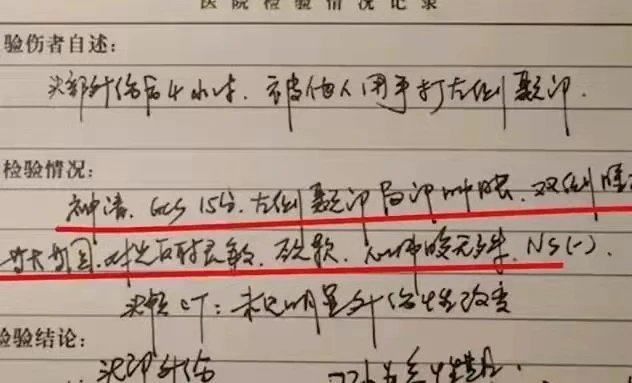 医院检验情况记录
验伤者自述:
头部外伤后4小时、被他人用手打左侧颞部.
检验情况:
神清、GCS 15分、左侧颞部局部肿胀、双侧瞳
等大等圆、对光反射灵敏、颈软、NS(-).
头颅CT:未见明显外伤性改变
检验结论:
头部外伤